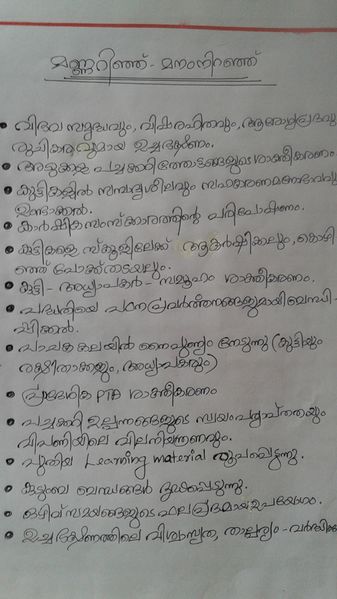 മണ്ണറിഞ്ഞ് - മനംനിറഞ്ഞ്
• വിഭവ സമൃദ്ധവും, വിഷരഹിതവും, ആരോഗ്യപ്രദവും
രുചികരവുമായ ഉച്ചഭക്ഷണം.
• അടുക്കള പച്ചക്കറിത്തോട്ടങ്ങളുടെ ശാക്തീകരണം
• കുട്ടികളിൽ സമ്പാദ്യശീലവും സഹകരണമനോഭാവവും
ഉണ്ടാക്കൽ.
• കാർഷിക സംസ്ക്കാരത്തിന്റെ പരിപോഷണം.
• കുട്ടികളെ സ്കൂളിലേക്ക് ആകർഷിക്കലും, കൊഴി
ഞ്ഞ് പോക്ക് തടയലും.
• കുട്ടി - അധ്യാപകർ - സമൂഹം ശാക്തീകരണം.
• പദ്ധതിയെ പഠനപ്രവർത്തനങ്ങളുമായി ബന്ധി-
പ്പിക്കൽ.
• പാചക കലയിൽ നൈപുണ്യം നേടുന്നു (കുട്ടിയും
രക്ഷിതാക്കളും, അധ്യാപകരും)
• പ്രാദേശിക PTA ശാക്തീകരണം
• പച്ചക്കറി ഉല്പന്നങ്ങളുടെ സ്വയംപര്യാപ്തതയും
വിപണിയിലെ വിലനിയന്ത്രണവും.
• പുതിയ Learning material രൂപപ്പെടുന്നു.
• കുടുംബ ബന്ധങ്ങൾ ദൃഢപ്പെടുന്നു.
• ഒഴിവ് സമയങ്ങളുടെ ഫലപ്രദമായ ഉപയോഗം.
• ഉച്ച ഭക്ഷണത്തിലെ വിശ്വാസ്യത, താല്പര്യം -